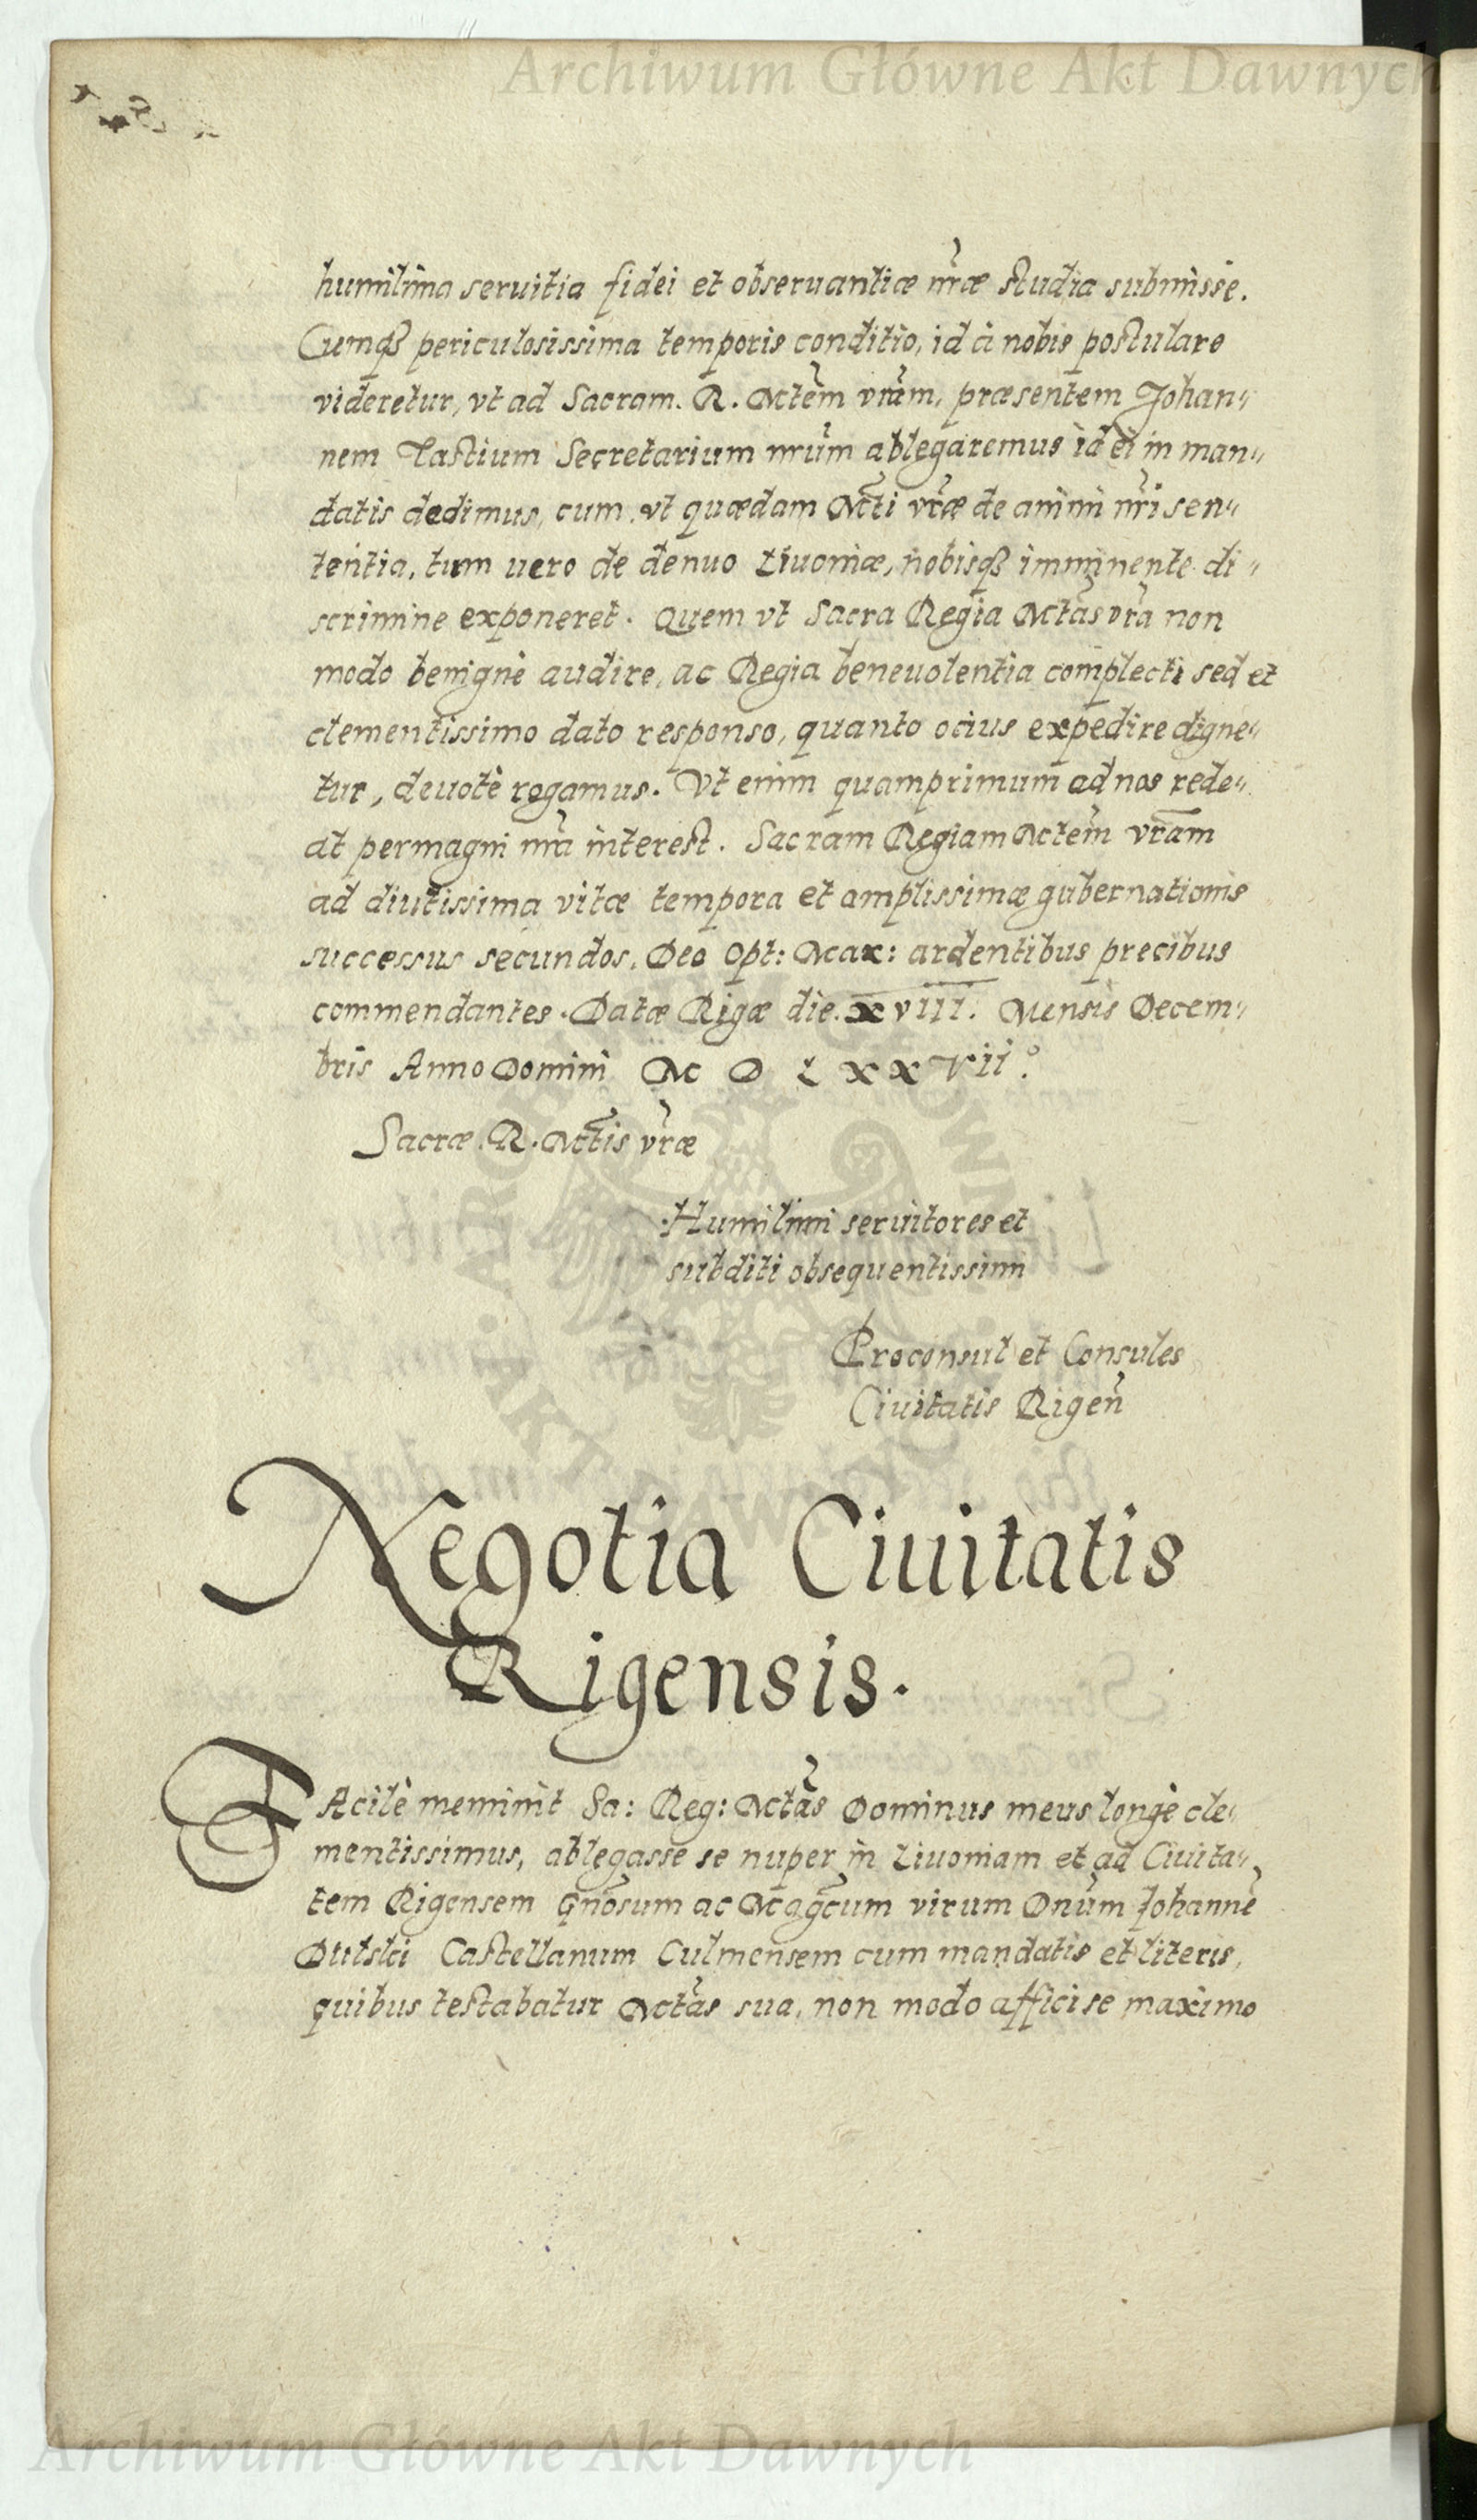 Archiwum Główne Akt Dawnych
humilima seruitia fidei et obseruantiæ nr̃æ studia submisse.
Cumqȝ periculosissima temporis conditio, id à nobis postulare
videretur, vt ad Sacram. R. Mtem̃ vrãm, præsentem Johan„
nem Tastium Secretarium nrũm ablegaremus id ei in man„
datis dedimus, cum vt quædam Mt̃i vr̃æ de animi nr̃i sen„
tentia, tum uero de denuo Liuoniæ, nobisqȝ imminente di„
scrimine exponeret. Quem vt Sacra Regia Mtas̃ vrã non
modo benignè audire, ac Regia beneuolentia complecti sed et
clementissimo dato responso, quanto ocius expedire digne„
tur, deuotè rogamus. Vt enim quamprimum ad nos rede„
at permagni nrã interest. Sacram Regiam Mtem̃ vrãm
ad diutissima vitæ tempora et amplissimæ gubernationis
successus secundos, Deo Opt: Max: ardentibus precibus
commendantes. Datæ Rigæ die. xviii. Mensis Decem„
bris Anno Domini M D L x x vii°.
Sacræ. R. Mt̃is vr̃æ
Humilimi seruitores et
subditi obsequentissimi
Proconsul et Consules
Ciuitatis Rigen̄
Negotia Ciuitatis
Rigensis.
FAcilè meminit Sa: Reg: Mtãs Dominus meus longè cle„
mentissimus, ablegasse se nuper in Liuoniam et ad Ciuita„
tem Rigensem Gñosum ac Mag̃cum virum Dnũm Johannẽ
Dulski Castellanum Culmensem cum mandatis et literis,
quibus testabatur Mtãs sua, non modo affici se maximo
Archiwum Główne Akt Dawnych